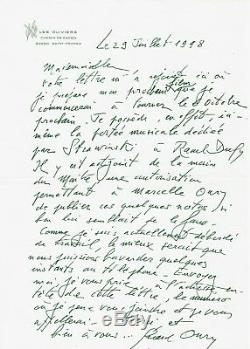 LES OLIVIERS
Le 29 Juillet 1998
Mademoiselle
votre lettre m'a rejoint ici où
je prépare mon prochain film que je
commencerai à tourner le 8 Octobre
prochain. Je possède, en effet, ici-
même la portée musicale dédiée
par Strawinski à Raoul Dufy
Il y est adjoint de la main
du Maître une autorisation
permettant à Marcelle Oury
de publier ces quelques notes si
bon lui semblait de le faire.
Comme je suis actuellement débordé
de travail, le mieux serait que
nous puissions bavarder quelques
instants au téléphone. Envoyez
moi, je vous prie, à l'adresse en-
tête de cette lettre, le numéro
où je peux vous joindre et je vous
appellerai
bien à vous... Gérard Oury
ebay